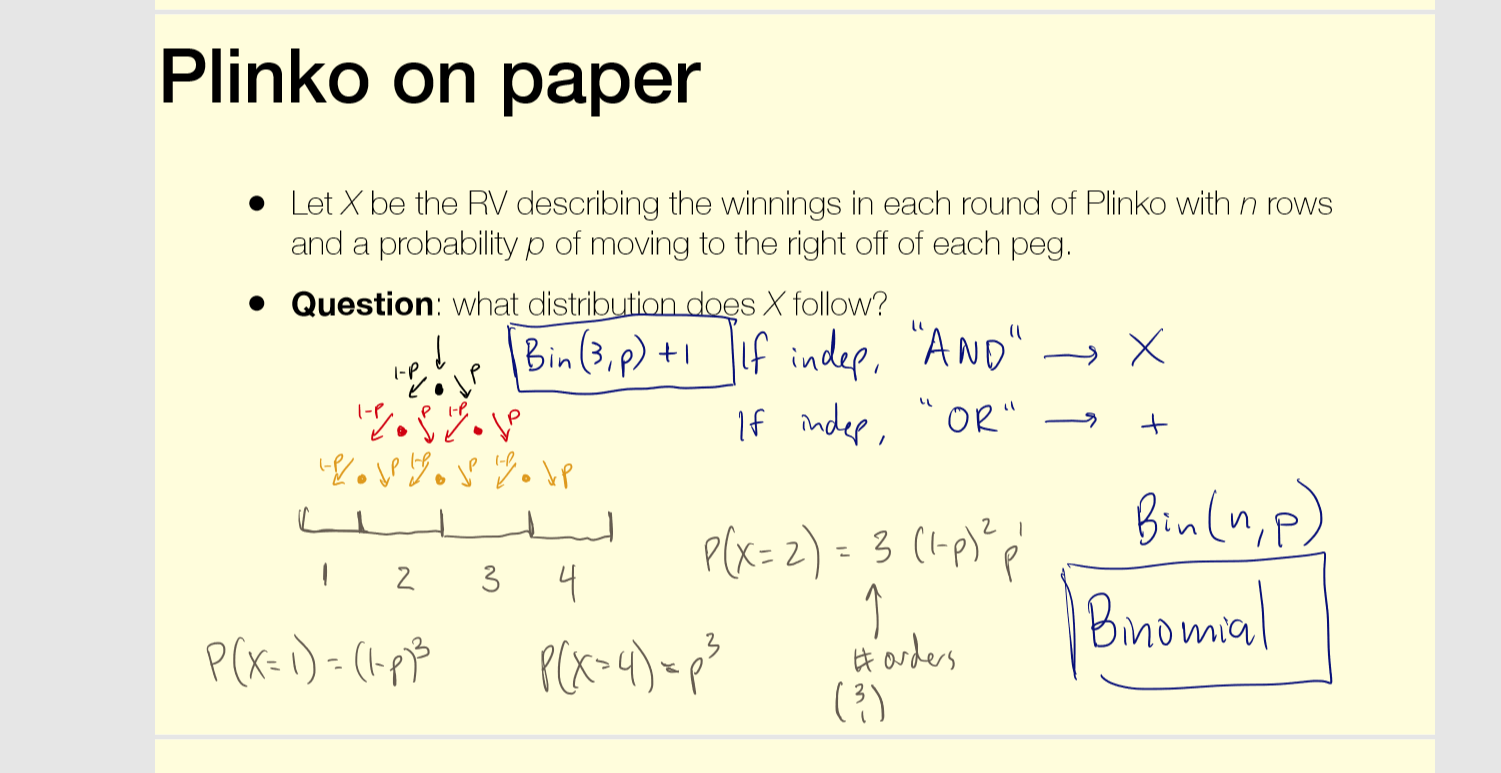 Plinko on paper
• Let X be the RV describing the winnings in each round of Plinko with n rows
and a probability p of moving to the right off of each peg.
• Question: what distribution does X follow?
Bin(3,p) +1
If indep, "AND" → X
If indep, "OR" → +
1-p p
1-p p 1-p p
1-p p 1-p p 1-p p
1 2 3 4
P(X=2) = 3 (1-p)² p¹
↑
# orders
(3 1)
Bin(n,p)
Binomial
P(X=1) = (1-p)³
P(X=4) = p³